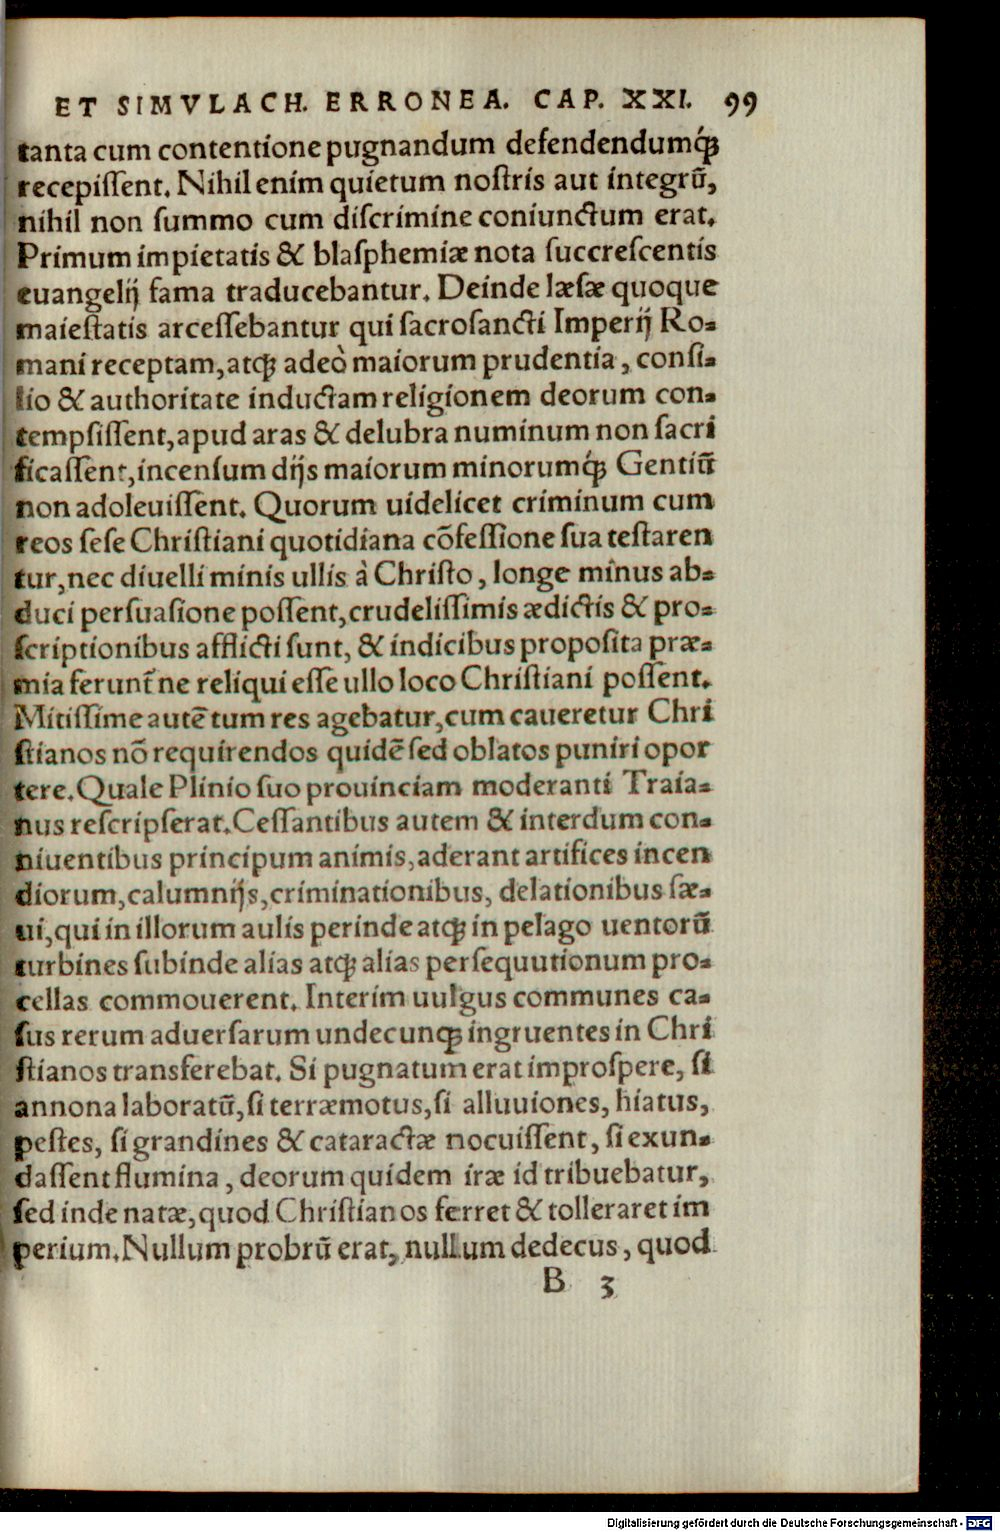 ET SIMVLACH. ERRONEA. CAP. XXI. 99
tanta cum contentione pugnandum defendendumq́ꝫ
recepiſſent. Nihil enim quietum noſtris aut integrũ,
nihil non ſummo cum diſcrimine coniunctum erat.
Primum impietatis & blaſphemiæ nota ſuccreſcentis
euangelij fama traducebantur. Deinde læſæ quoque
maieſtatis arceſſebantur qui ſacroſancti Imperij Ro-
mani receptam, atqꝫ adeò maiorum prudentia, conſi-
lio & authoritate inductam religionem deorum con-
tempſiſſent, apud aras & delubra numinum non ſacri
ficaſſent, incenſum dijs maiorum minorumq́ꝫ Gentiũ
non adoleuiſſent. Quorum uidelicet criminum cum
reos ſeſe Chriſtiani quotidiana cõfeſſione ſua teſtaren
tur, nec diuelli minis ullis à Chriſto, longe minus ab-
duci perſuaſione poſſent, crudeliſſimis ædictis & pro-
ſcriptionibus afflicti ſunt, & indicibus propoſita præ-
mia ferunt̃ ne reliqui eſſe ullo loco Chriſtiani poſſent.
Mitiſſime autẽ tum res agebatur, cum caueretur Chri
ſtianos nõ requirendos quidẽ ſed oblatos puniri opor
tere. Quale Plinio ſuo prouinciam moderanti Traia-
nus reſcripſerat. Ceſſantibus autem & interdum con-
niuentibus principum animis, aderant artifices incen
diorum, calumnijs, criminationibus, delationibus ſæ-
ui, qui in illorum aulis perinde atqꝫ in pelago uentorũ
turbines ſubinde alias atqꝫ alias perſequutionum pro-
cellas commouerent. Interim uulgus communes ca-
ſus rerum aduerſarum undecunqꝫ ingruentes in Chri
ſtianos transferebat. Si pugnatum erat improſpere, ſi
annona laboratũ, ſi terræmotus, ſi alluuiones, hiatus,
peſtes, ſi grandines & cataractæ nocuiſſent, ſi exun-
daſſent flumina, deorum quidem iræ id tribuebatur,
ſed inde natæ, quod Chriſtianos ferret & tolleraret im
perium. Nullum probrũ erat, nullum dedecus, quod
B 3
Digitalisierung gefördert durch die Deutsche Forschungsgemeinschaft - DFG